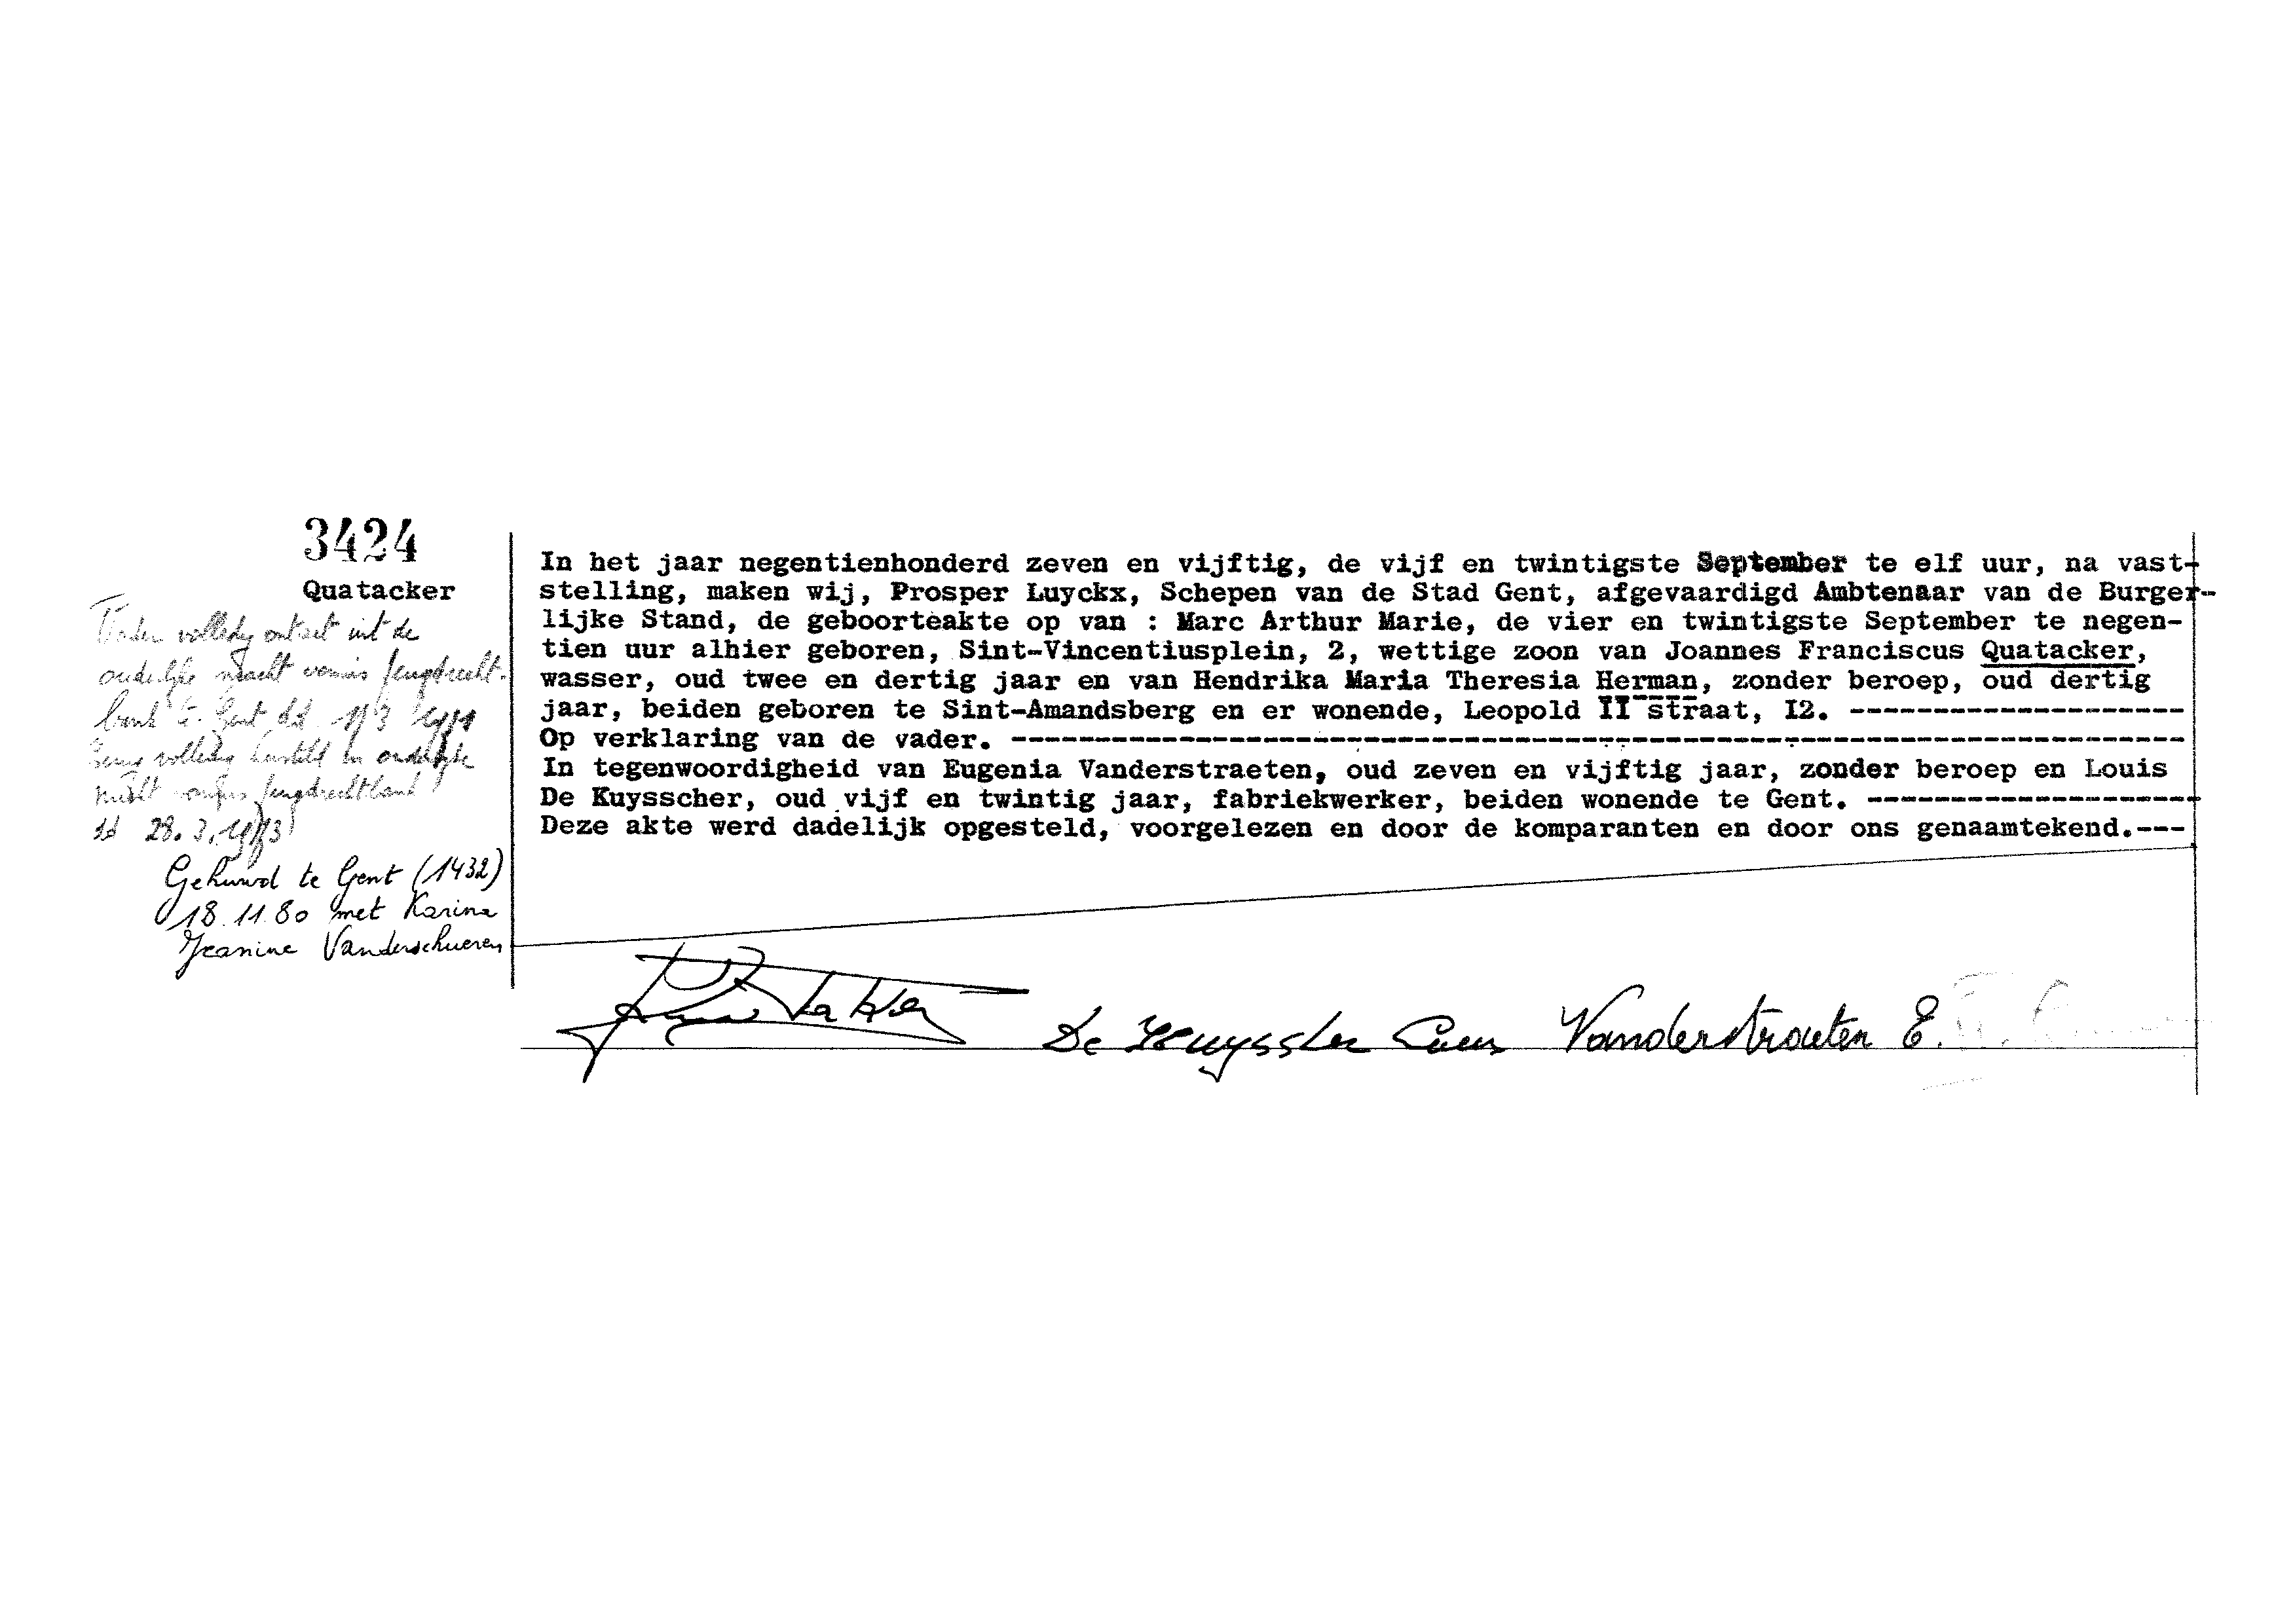 3424
Quatacker
Vader volledig ontzet uit de
ouderlijke macht vonnis Jeugdrecht-
bank te Gent dd 1/3 1971
volledig hersteld in ouderlijke
macht vonnis Jeugdrechtbank
dd 28.3.1973
Gehuwd te Gent (1432)
18.11.80 met Karina
Jeanine Vanderschueren
In het jaar negentienhonderd zeven en vijftig, de vijf en twintigste September te elf uur, na vast-
stelling, maken wij, Prosper Luyckx, Schepen van de Stad Gent, afgevaardigd Ambtenaar van de Burger-
lijke Stand, de geboorteakte op van : Marc Arthur Marie, de vier en twintigste September te negen-
tien uur alhier geboren, Sint-Vincentiusplein, 2, wettige zoon van Joannes Franciscus Quatacker,
wasser, oud twee en dertig jaar en van Hendrika Maria Theresia Herman, zonder beroep, oud dertig
jaar, beiden geboren te Sint-Amandsberg en er wonende, Leopold II straat, I2. --------------------
Op verklaring van de vader. ----------------------------------------------------------------------
In tegenwoordigheid van Eugenia Vanderstraeten, oud zeven en vijftig jaar, zonder beroep en Louis
De Kuysscher, oud vijf en twintig jaar, fabriekwerker, beiden wonende te Gent. --------------------
Deze akte werd dadelijk opgesteld, voorgelezen en door de komparanten en door ons genaamtekend.---
De Vanderstraeten E.